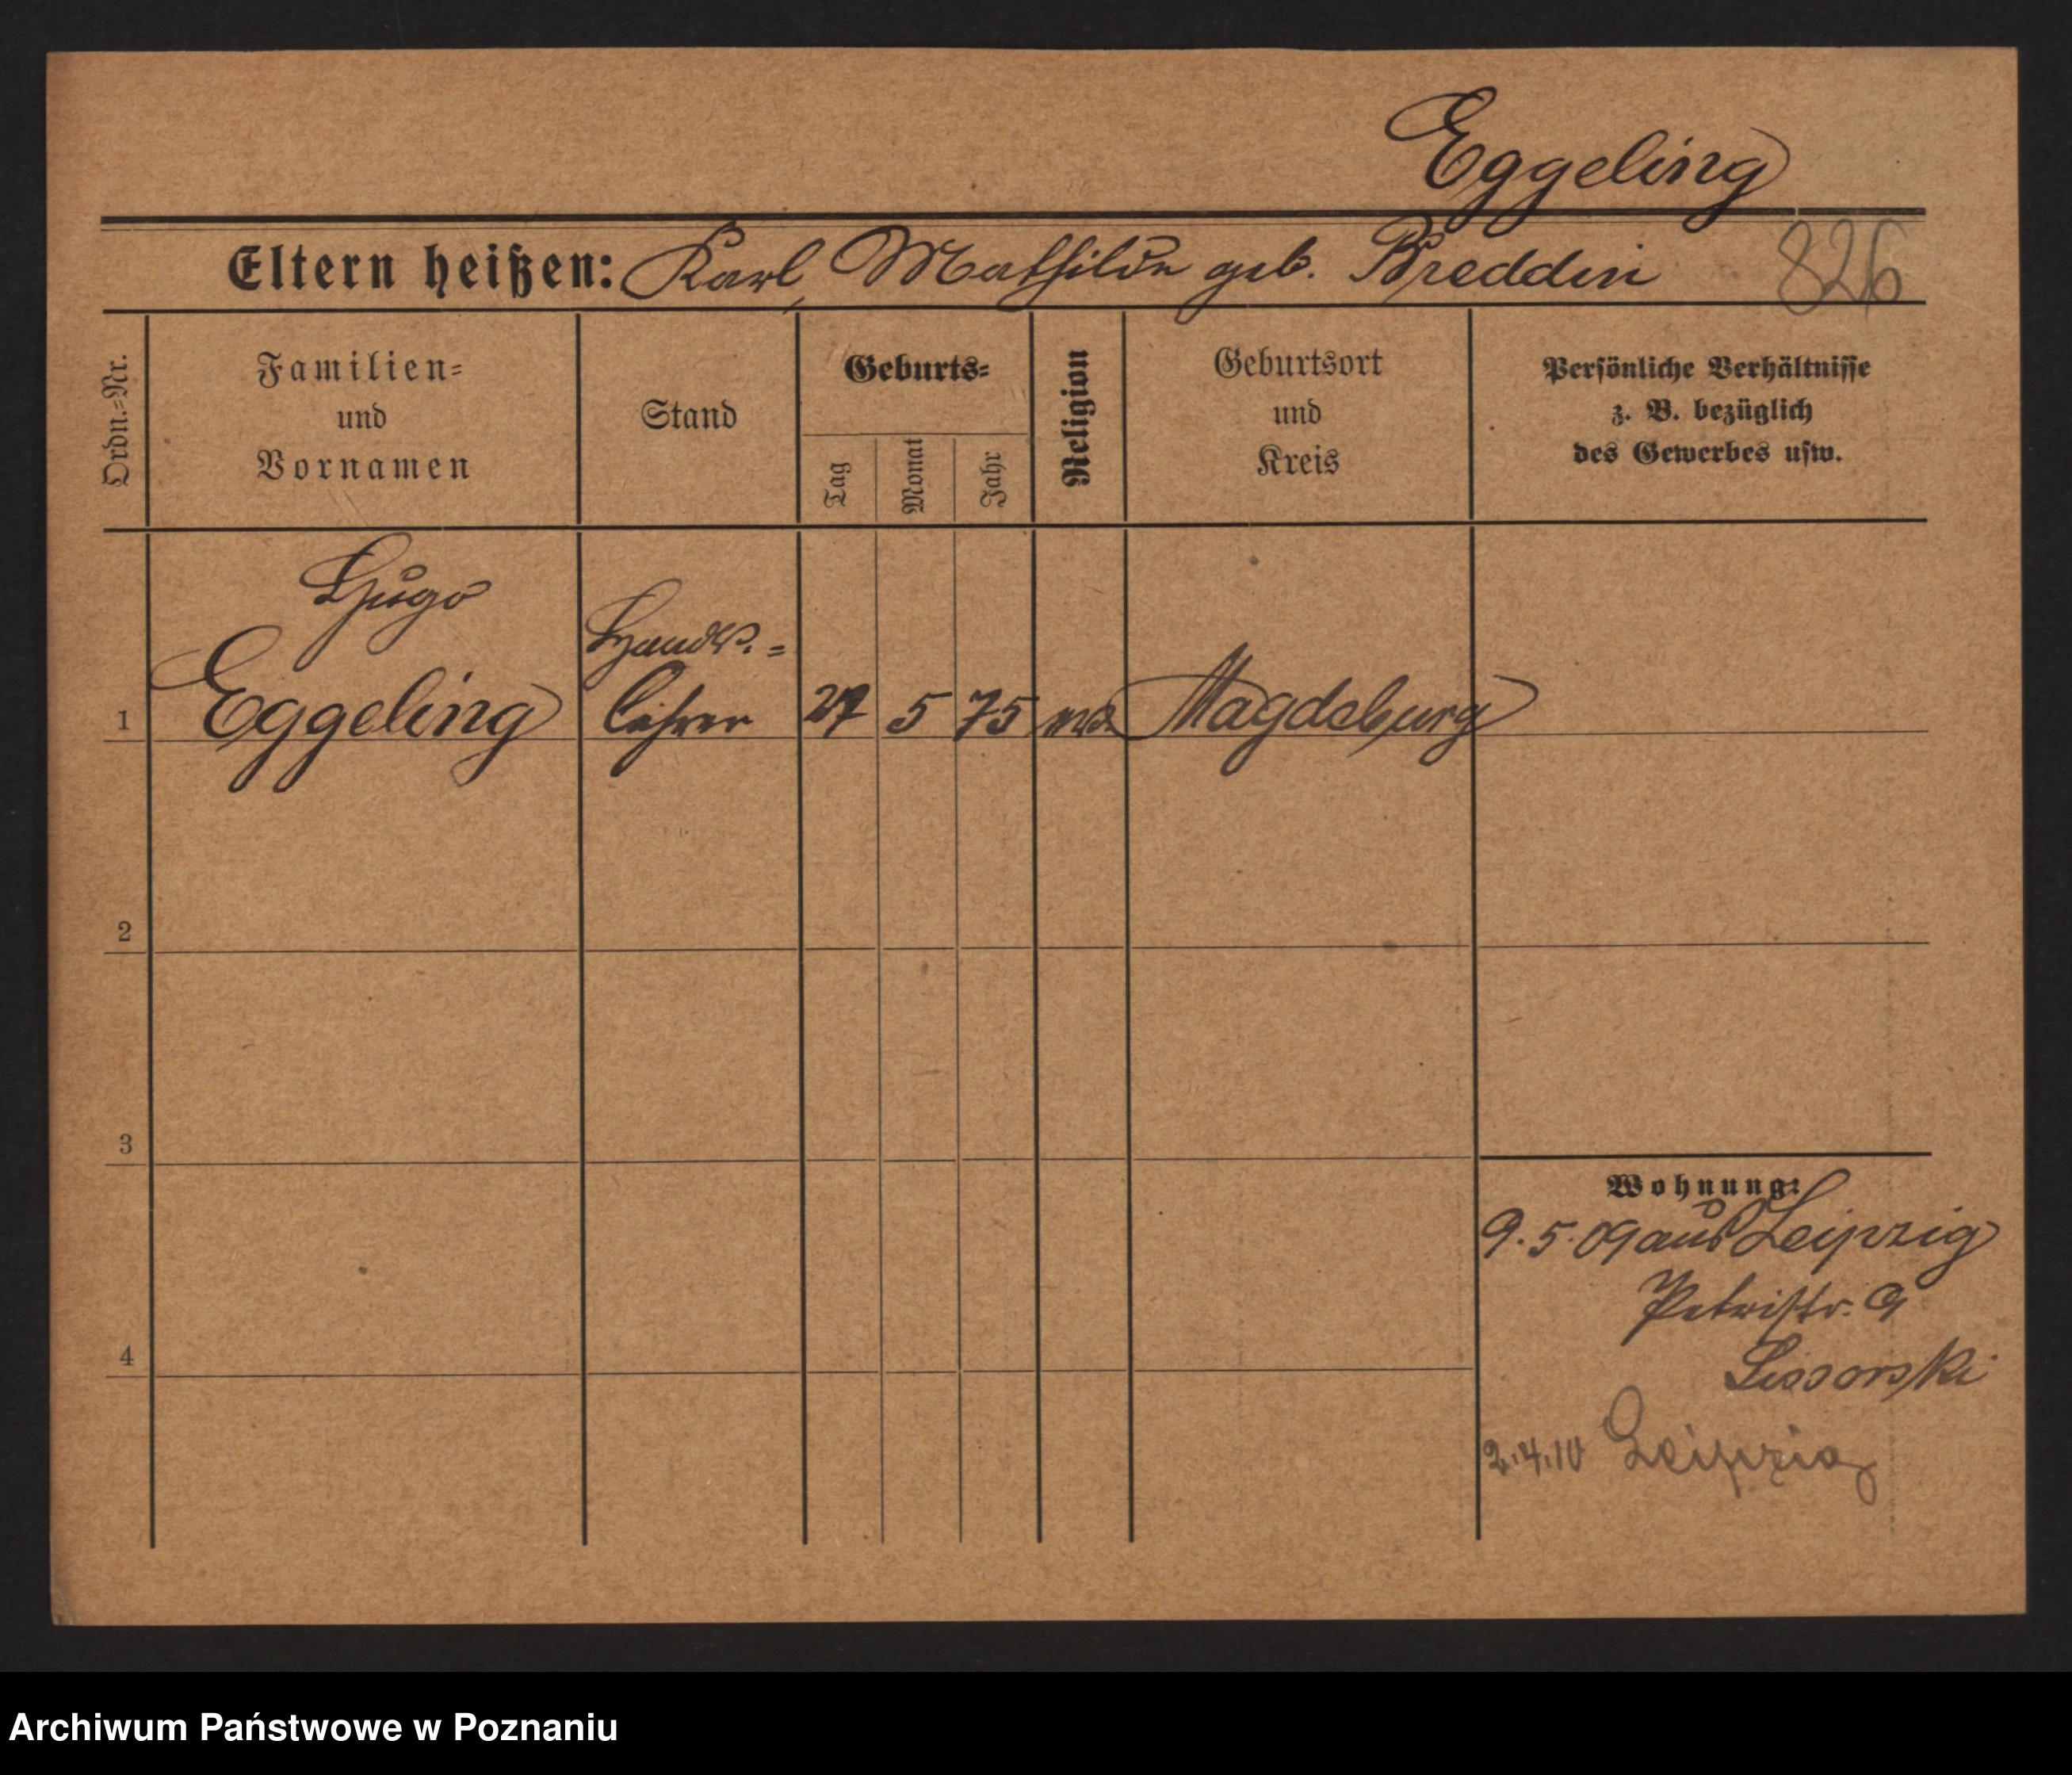 Eggeling
Eltern heißen: Karl, Mathilde geb. Breddin 826
Ordn.=Nr.
Familien=
und
Vornamen
Stand
Geburts=
Tag
Monat
Jahr
Religion
Geburtsort
und
Kreis
Persönliche Verhältnisse
z. B. bezüglich
des Gewerbes usw.
Hugo
Handls.=
1 Eggeling lehrer 27 5 75 Magdeburg
2
3
4
Wohnung:
9.5.09 aus Leipzig
Petristr. 9
Lissorski
2.4.10 Leipzig
Archiwum Państwowe w Poznaniu